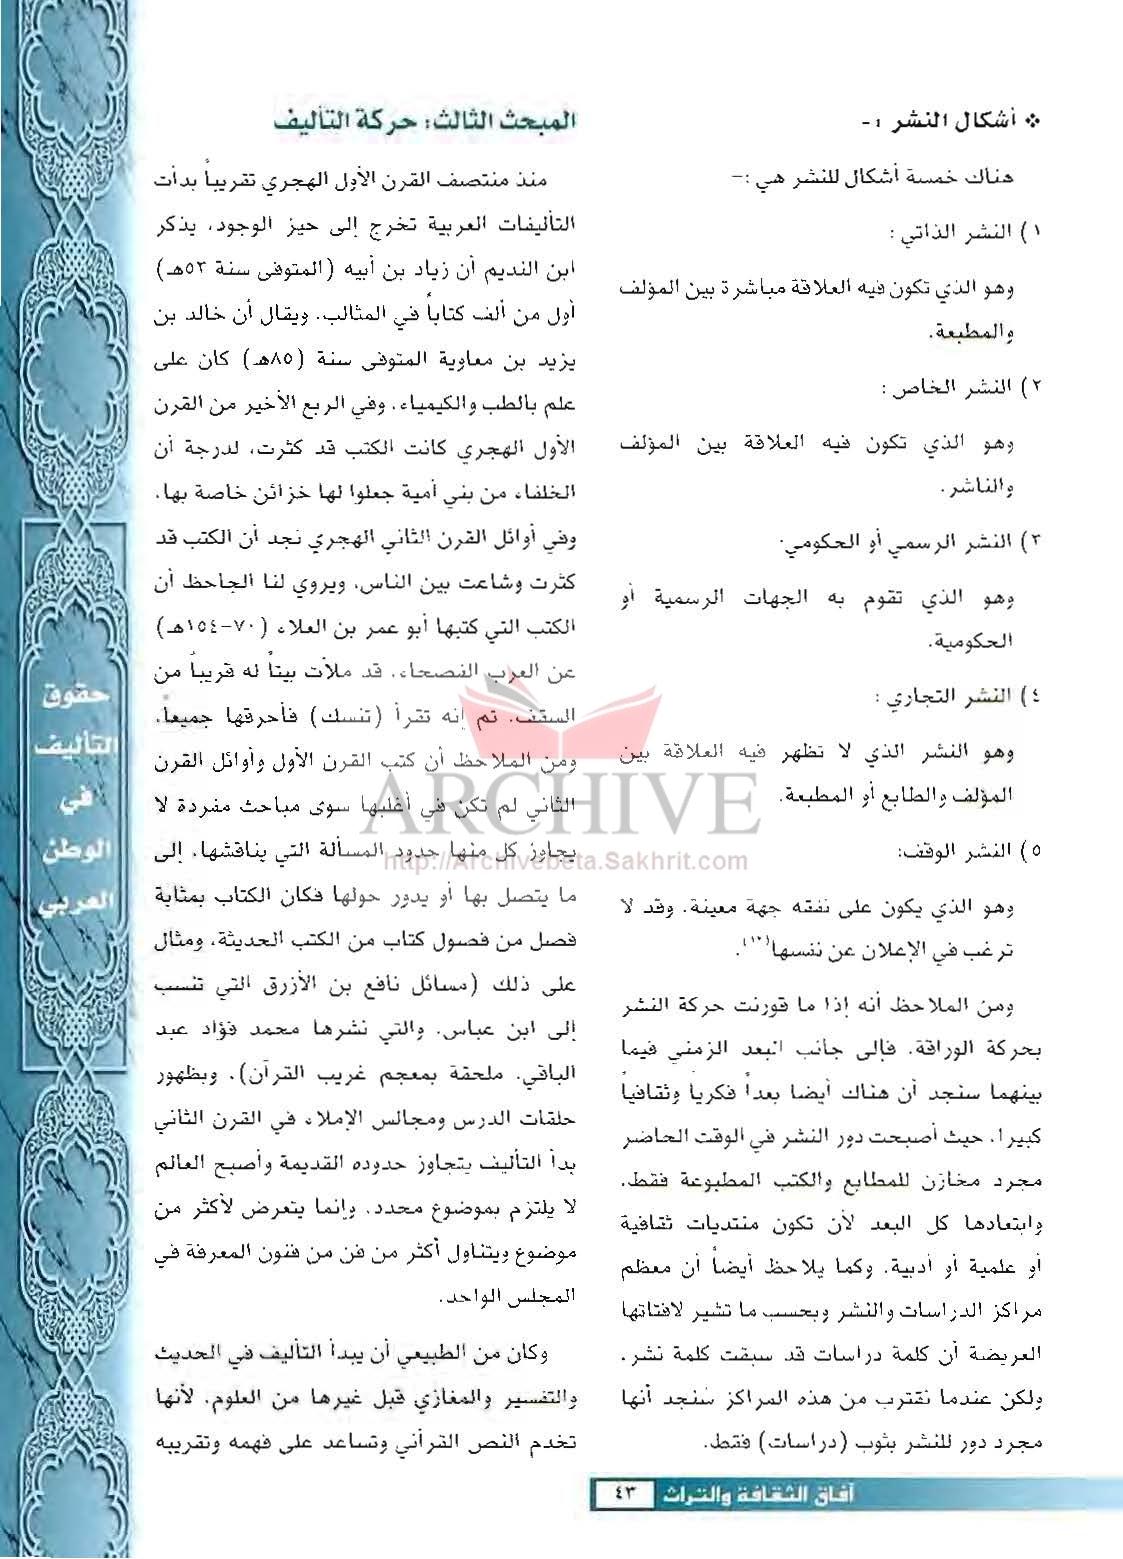 ❖ أشكال النشر : -
هناك خمسة أشكال للنشر هي :-
١) النشر الذاتي :
وهو الذي تكون فيه العلاقة مباشرة بين المؤلف
والمطبعة.
٢) النشر الخاص :
وهو الذي تكون فيه العلاقة بين المؤلف
والناشر.
٣) النشر الرسمي أو الحكومي.
وهو الذي تقوم به الجهات الرسمية أو
الحكومية.
٤) النشر التجاري :
وهو النشر الذي لا تظهر فيه العلاقة بين
المؤلف والطابع أو المطبعة.
٥) النشر الوقف:
وهو الذي يكون على نفقه جهة معينة، وقد لا
ترغب في الإعلان عن نفسها(١٠).
ومن الملاحظ أنه إذا ما قورنت حركة النشر
بحركة الوراقة، فإلى جانب البعد الزمني فيما
بينهما سنجد أن هناك أيضا بعداً فكرياً وثقافياً
كبيرا، حيث أصبحت دور النشر في الوقت الحاضر
مجرد مخازن للمطابع والكتب المطبوعة فقط،
وابتعادها كل البعد لأن تكون منتديات ثقافية
أو علمية أو أدبية، وكما يلاحظ أيضاً أن معظم
مراكز الدراسات والنشر وبحسب ما تشير لافتاتها
العريضة أن كلمة دراسات قد سبقت كلمة نشر،
ولكن عندما نقترب من هذه المراكز سنجد أنها
مجرد دور للنشر بثوب (دراسات) فقط.
المبحث الثالث: حركة التأليف
منذ منتصف القرن الأول الهجري تقريباً بدأت
التأليفات العربية تخرج إلى حيز الوجود، يذكر
ابن النديم أن زياد بن أبيه (المتوفى سنة ٥٣هـ)
أول من ألف كتاباً في المثالب، ويقال أن خالد بن
يزيد بن معاوية المتوفى سنة (٨٥هـ) كان على
علم بالطب والكيمياء، وفي الربع الأخير من القرن
الأول الهجري كانت الكتب قد كثرت، لدرجة أن
الخلفاء من بني أمية جعلوا لها خزائن خاصة بها،
وفي أوائل القرن الثاني الهجري نجد أن الكتب قد
كثرت وشاعت بين الناس، ويروي لنا الجاحظ أن
الكتب التي كتبها أبو عمر بن العلاء (٧٠-١٥٤هـ)
عن العرب الفصحاء، قد ملأت بيتاً له قريباً من
السقف، ثم إنه تقرأ (تنسك) فأحرقها جميعاً،
ومن الملاحظ أن كتب القرن الأول وأوائل القرن
الثاني لم تكن في أغلبها سوى مباحث مفردة لا
يجاوز كل منها حدود المسألة التي يناقشها، إلى
ما يتصل بها أو يدور حولها فكان الكتاب بمثابة
فصل من فصول كتاب من الكتب الحديثة، ومثال
على ذلك (مسائل نافع بن الأزرق التي تنسب
إلى ابن عباس، والتي نشرها محمد فؤاد عبد
الباقي، ملحقة بمعجم غريب القرآن)، وبظهور
حلقات الدرس ومجالس الإملاء في القرن الثاني
بدأ التأليف يتجاوز حدوده القديمة وأصبح العالم
لا يلتزم بموضوع محدد، وإنما يتعرض لأكثر من
موضوع ويتناول أكثر من فن من فنون المعرفة في
المجلس الواحد.
وكان من الطبيعي أن يبدأ التأليف في الحديث
والتفسير والمغازي قبل غيرها من العلوم، لأنها
تخدم النص القرآني وتساعد على فهمه وتقريبه
حقوق
التأليف
في
الوطن
العربي
ARCHIVE
http://Archivebeta.Sakhrit.com
آفاق الثقافة والتراث ٤٣